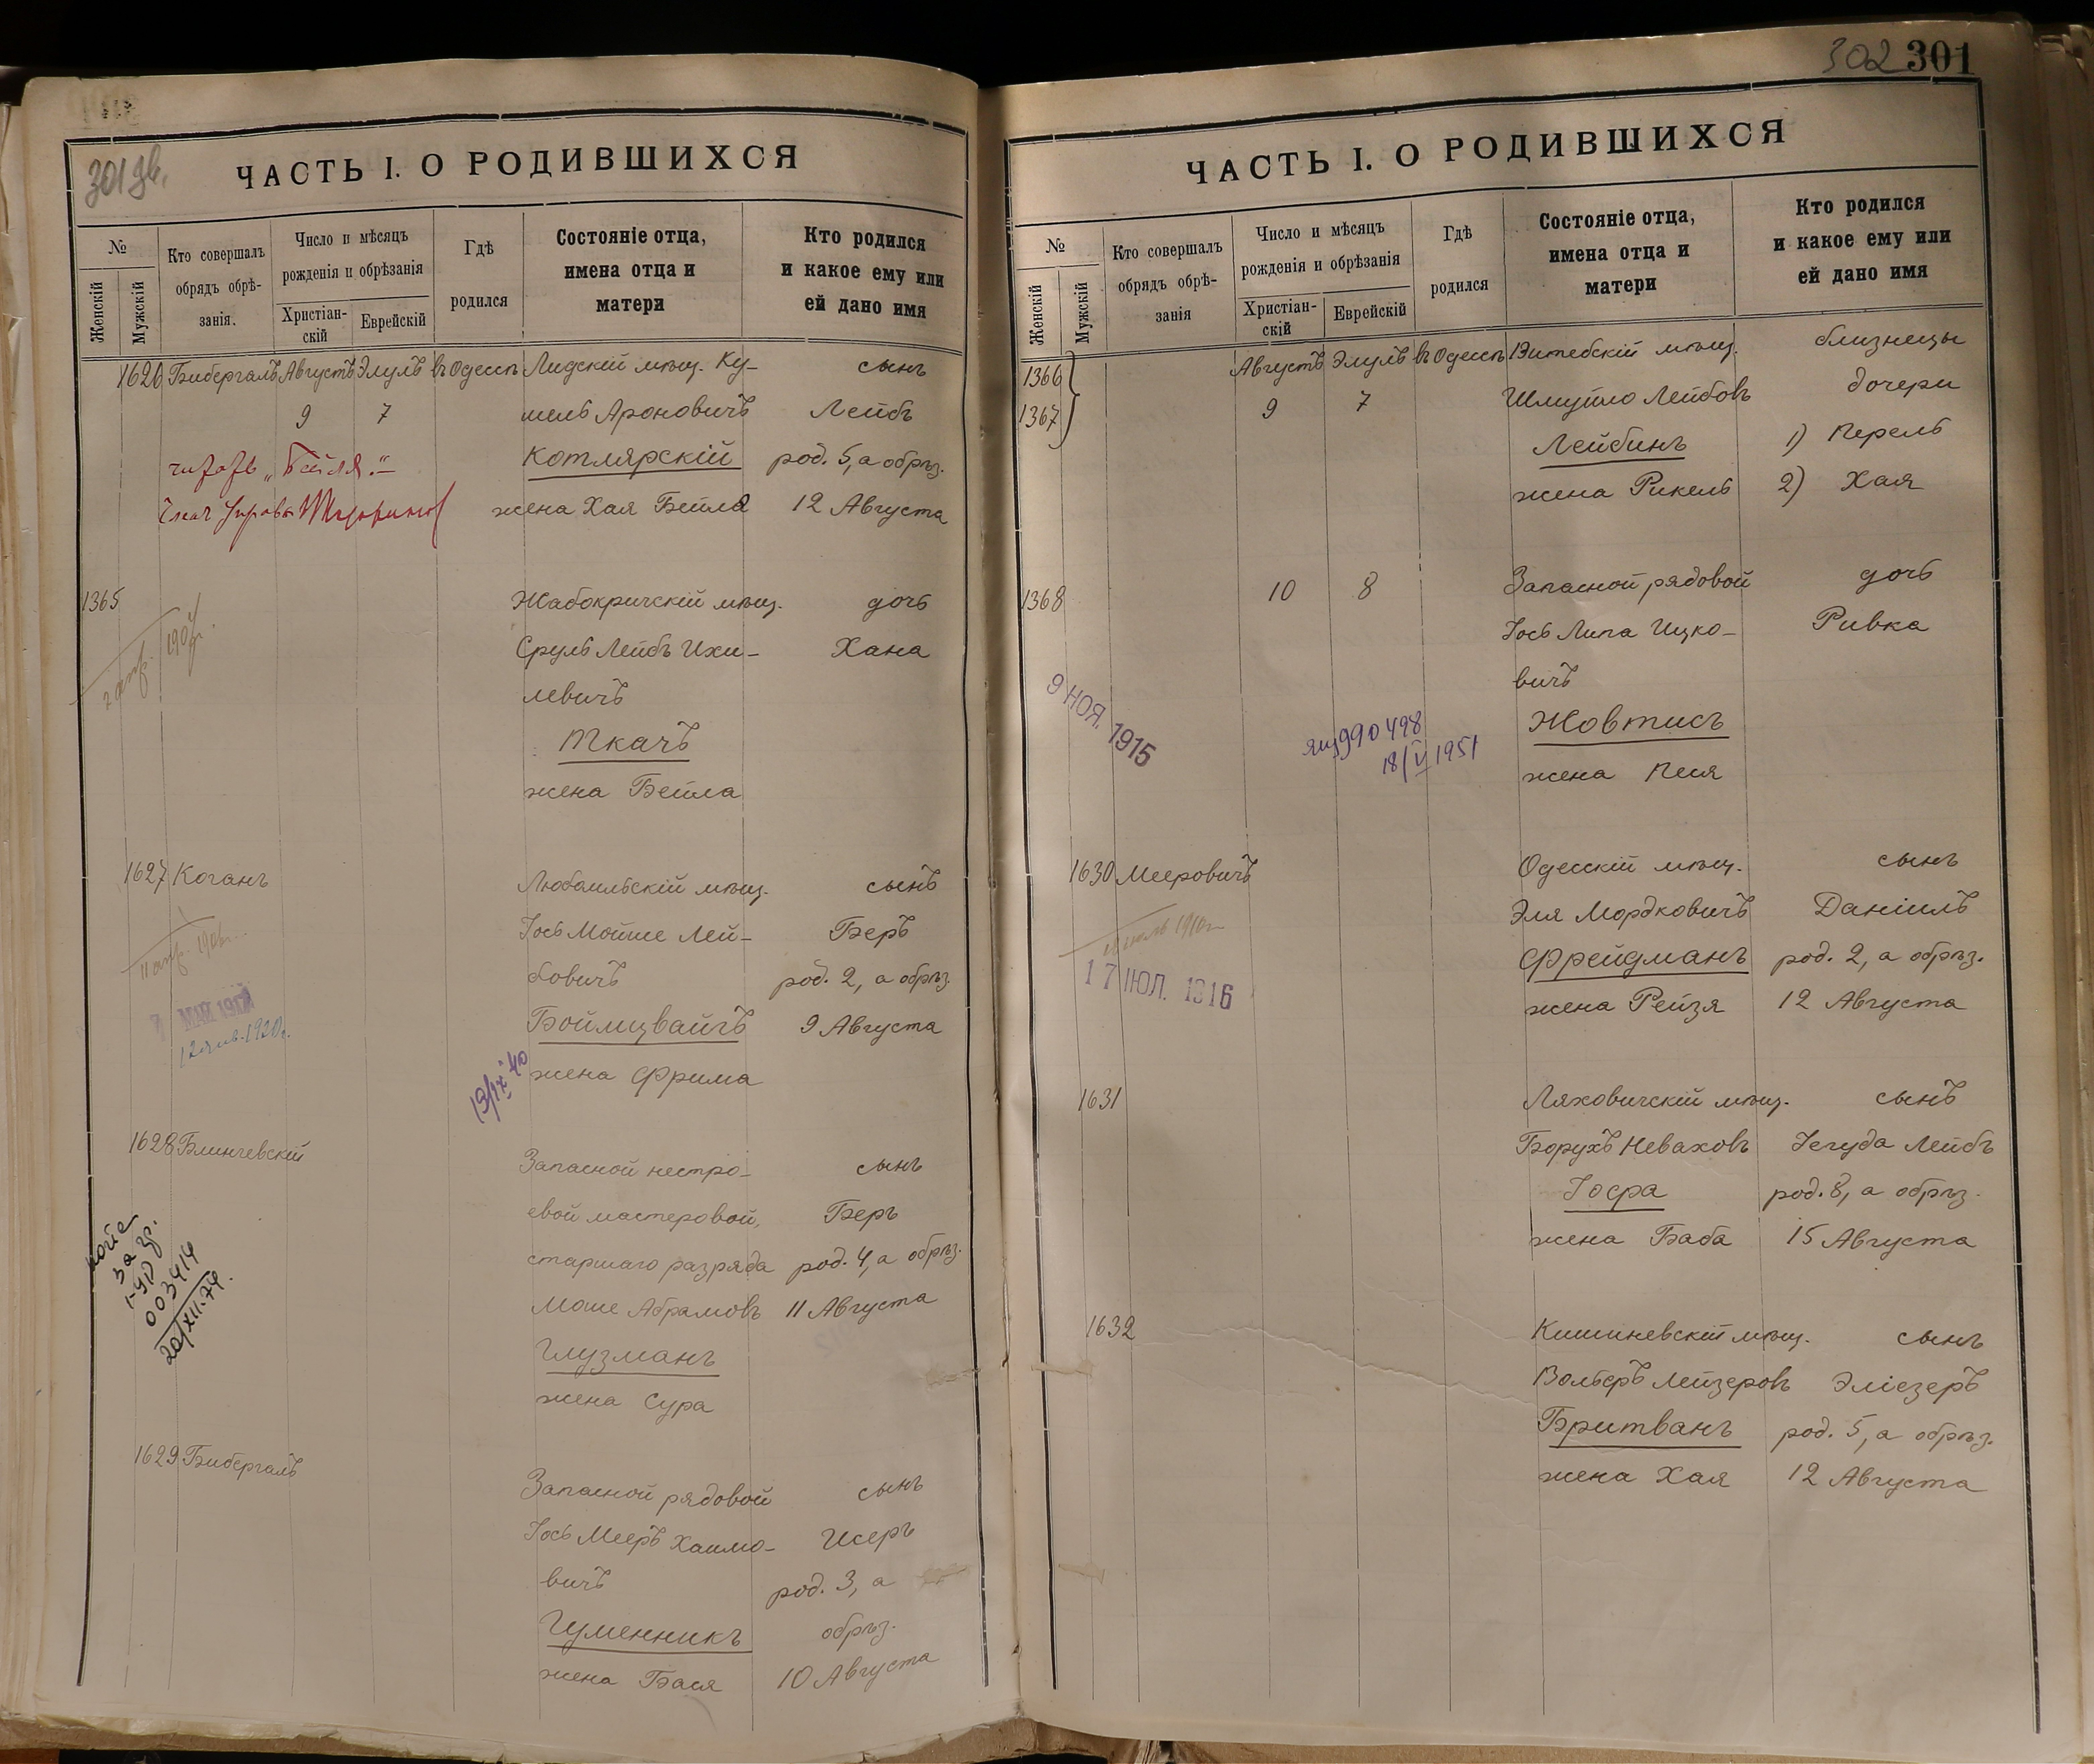 301 дв.
ЧАСТЬ I. О РОДИВШИХСЯ
№
Женскій
Мужскій
Кто совершалъ
обрядъ обрѣ-
занія.
Число и мѣсяцъ
рожденія и обрѣзанія
Христіан-
скій
Еврейскій
Гдѣ
родился
Состояніе отца,
имена отца и
матери
Кто родился
и какое ему или
ей дано имя
1626 Бибергалъ Августъ Элулъ въ Одессѣ Лидскій мѣщ. Ку- сынъ
9 7 мель Ароновичъ Лейбъ
читать „Бейля“ Котлярскій род. 5, а обрѣз.
Член Управы жена Хая Бейла 12 Августа
1365 Жабокричскій мѣщ. дочь
Сруль Лейбъ Ихи- Хана
левичъ
Ткачъ
жена Бейла
1627 Коганъ Любомльскій мѣщ. сынъ
Іось Мойше Лей- Беръ
бовичъ род. 2, а обрѣз.
Боймцвайгъ 9 Августа
жена Фрима
МАЯ
12 янв. 1920г.
19/IX 40
1628 Блинчевскій Запасной нестро- сынъ
евой мастеровой, Беръ
старшаго разряда род. 4, а обрѣз.
Моше Абрамовъ 11 Августа
Глузманъ
жена Сура
за гр.
003414
20/XII-74.
1629 Бибергалъ Запасной рядовой сынъ
Іось Мееръ Хаимо- Исеръ
вичъ род. 3, а
Гуменникъ обрѣз.
жена Бася 10 Августа
302 301
ЧАСТЬ I. О РОДИВШИХСЯ
№
Женскій
Мужскій
Кто совершалъ
обрядъ обрѣ-
занія
Число и мѣсяцъ
рожденія и обрѣзанія
Христіан-
скій
Еврейскій
Гдѣ
родился
Состояніе отца,
имена отца и
матери
Кто родился
и какое ему или
ей дано имя
1366 Августъ Элулъ въ Одессѣ Витебскій мѣщ. близнецы
1367 9 7 Шмуйло Лейбовъ дочери
Лейбинъ 1) Перель
жена Рикель 2) Хая
1368 10 8 Запасной рядовой дочь
Іось Липа Ицко- Ривка
вичъ
9 НОЯ. 1915
990498 Жовтисъ
18/V 1951
жена Песя
1630 Мееровичъ Одесскій мѣщ. сынъ
Эля Мордковичъ Даніилъ
Фрейдманъ род. 2, а обрѣз.
17 ІЮЛ. 1916 жена Рейзя 12 Августа
1631 Ляховичскій мѣщ. сынъ
Борухъ Неваховъ Іегуда Лейбъ
Іосфа род. 8, а обрѣз.
жена Баба 15 Августа
1632 Кишиневскій мѣщ. сынъ
Вольфъ Лейзеровъ Эліезеръ
Бритванъ род. 5, а обрѣз.
жена Хая 12 Августа